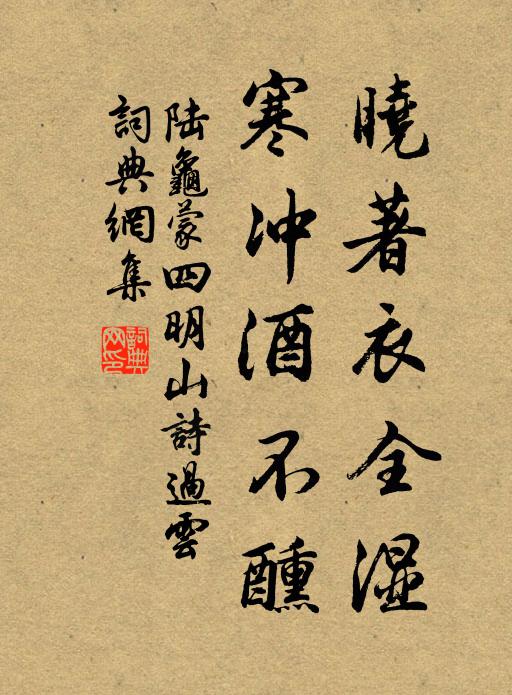 曉著衣全濕
寒沖酒不醺
陸龜蒙四明山詩過雲
詞典網集
詞典網印